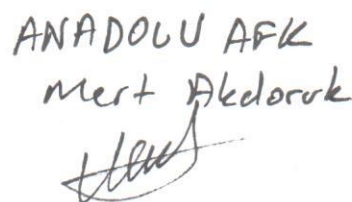 ANADOLU AFK
Mert Akdoruk